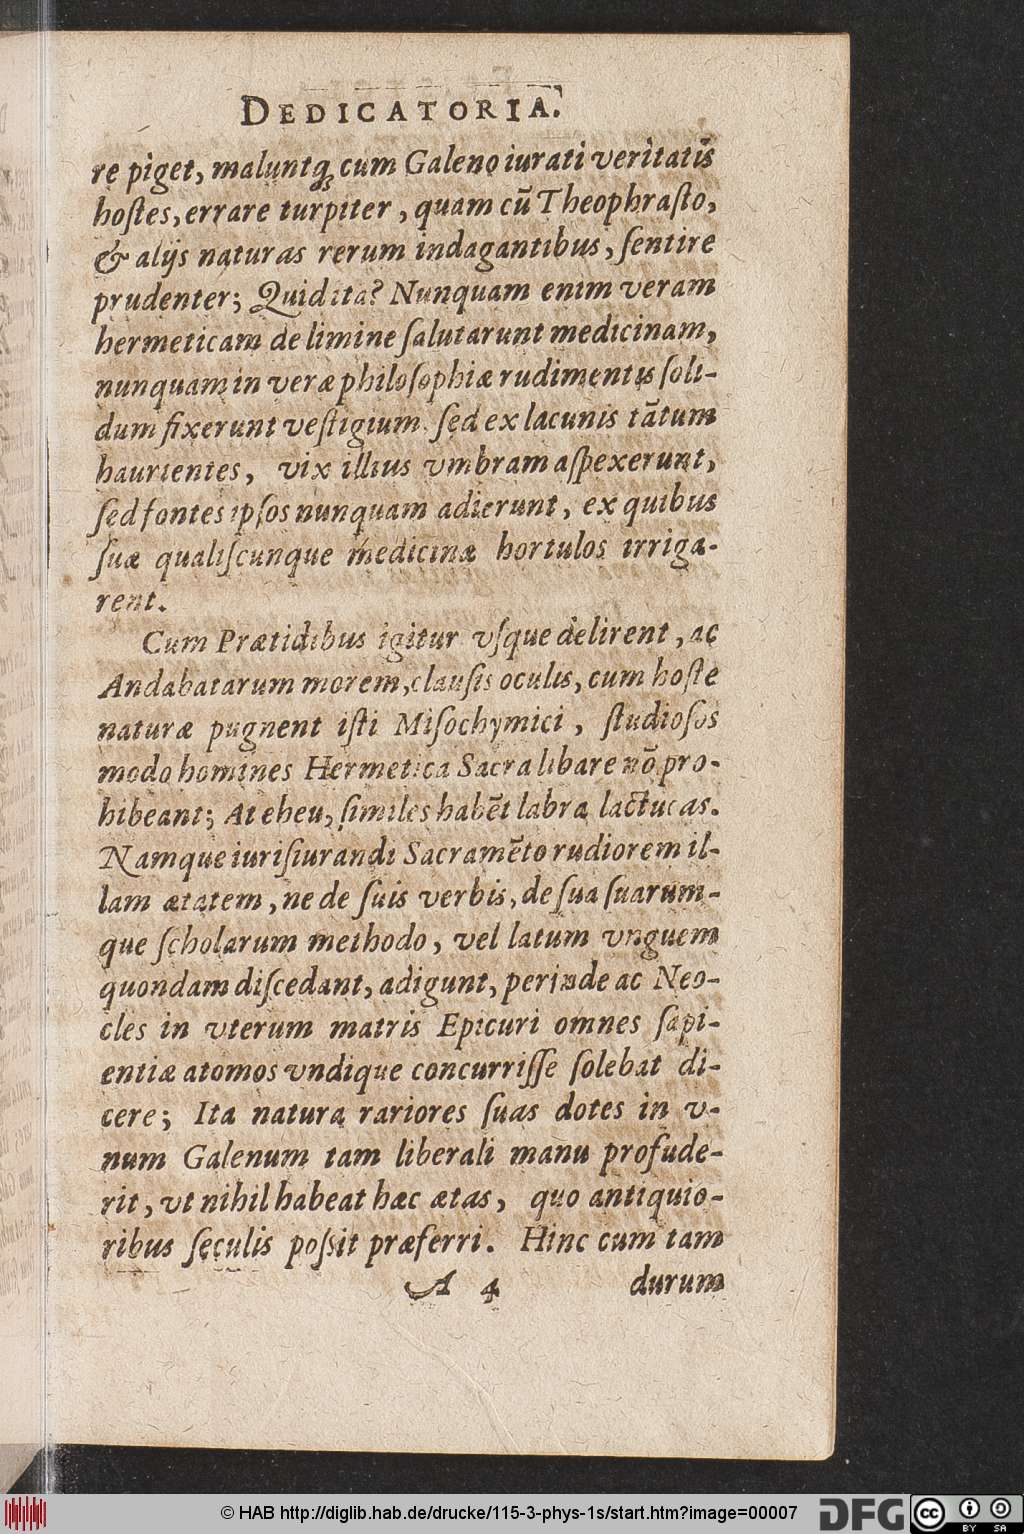 DEDICATORIA.
re piget, maluntq́ꝫ cum Galeno iurati veritatis
hoſtes, errare turpiter, quam cū Theophraſto,
& alijs naturas rerum indagantibus, ſentire
prudenter; Quid ita? Nunquam enim veram
hermeticam de limine ſalutarunt medicinam,
nunquam in veræ philoſophiæ rudimentis ſoli-
dum fixerunt veſtigium. ſed ex lacunis tātum
haurientes, vix illius vmbram aſpexerunt,
ſed fontes ipſos nunquam adierunt, ex quibus
ſuæ qualiſcunque medicinæ hortulos irriga-
rent.
Cum Prætidibus igitur vſque delirent, ac
Andabatarum morem, clauſis oculis, cum hoſte
naturæ pugnent iſti Miſochymici, ſtudioſos
modo homines Hermetica Sacra libare nō pro-
hibeant; At eheu, ſimiles habēt labra lactucas.
Namque iuriſiurandi Sacramēto rudiorem il-
lam ætatem, ne de ſuis verbis, de ſua ſuarum-
que ſcholarum methodo, vel latum vnguem
quondam diſcedant, adigunt, perinde ac Neo-
cles in vterum matris Epicuri omnes ſapi-
entiæ atomos vndique concurriſſe ſolebat di-
cere; Ita natura rariores ſuas dotes in v-
num Galenum tam liberali manu profude-
rit, vt nihil habeat hæc ætas, quo antiquio-
ribus ſeculis poſsit præferri. Hinc cum tam
A 4 durum
© HAB http://diglib.hab.de/drucke/115-3-phys-1s/start.htm?image=00007 DFG cc BY SA